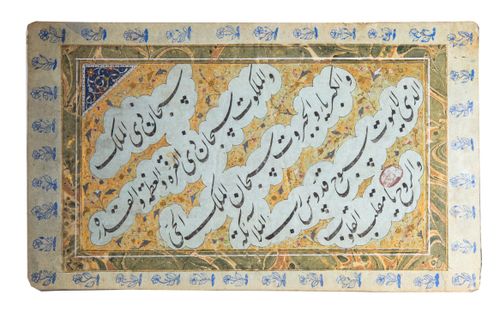 سبحان ذی الملک
والملکوت سبحان ذی العزة والعظمة والقدرة
والکبریاء والجبروت سبحان الملک الحی
الذی لایموت سبوح قدوس رب الملائکة
والروح یا مقلب القلوب